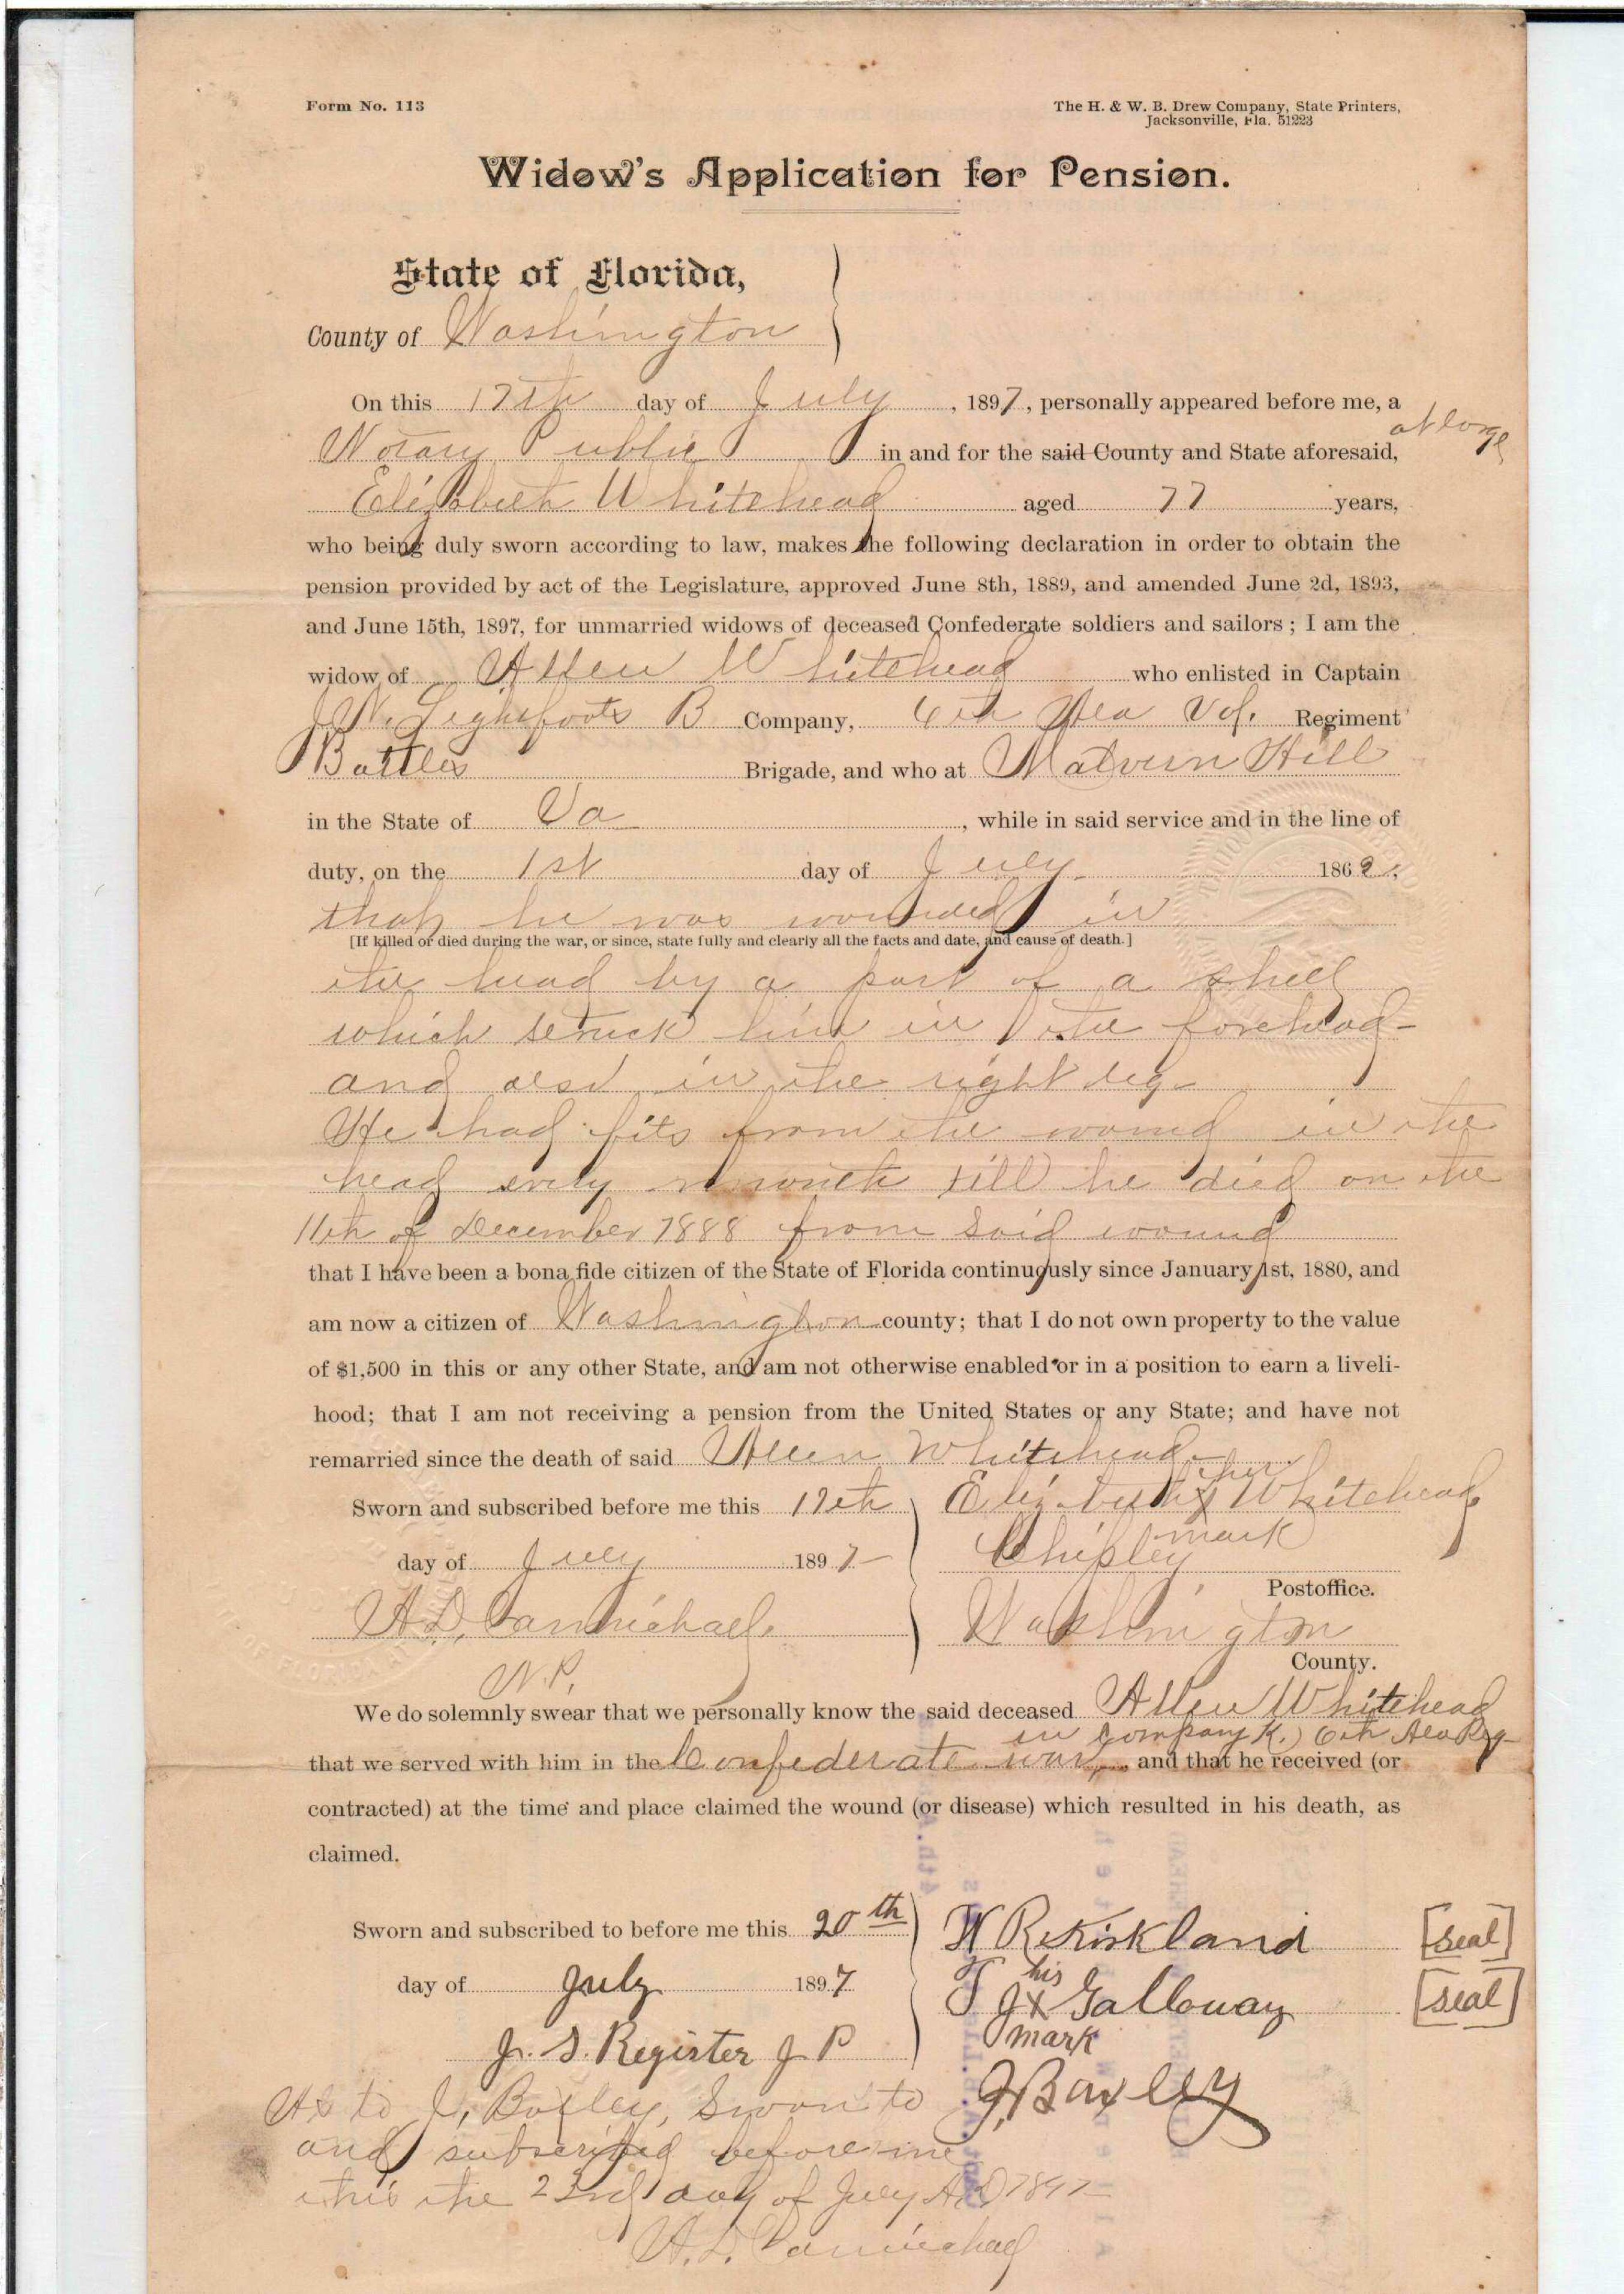 Form No. 113
The H. & W. B. Drew Company, State Printers,
Jacksonville, Fla. 51223
Widow's Application for Pension.
State of Florida,
County of Washington
On this 17th day of July, 1897, personally appeared before me, a
Notary Public in and for the said County and State aforesaid, at large
Elizabeth Whitehead aged 77 years,
who being duly sworn according to law, makes the following declaration in order to obtain the
pension provided by act of the Legislature, approved June 8th, 1889, and amended June 2d, 1893,
and June 15th, 1897, for unmarried widows of deceased Confederate soldiers and sailors; I am the
widow of Allen Whitehead who enlisted in Captain
J. W. Lightfoots B Company, 6th Ala Vol. Regiment
Battles Brigade, and who at Malvern Hill
in the State of Va, while in said service and in the line of
duty, on the 1st day of July 1862,
that he was wounded in
[If killed or died during the war, or since, state fully and clearly all the facts and date, and cause of death.]
the head by a part of a shell
which struck him in the forehead-
and also in the right leg
He had fits from the wound in the
head every month till he died on the
11th of December 1888 from said wound
that I have been a bona fide citizen of the State of Florida continuously since January 1st, 1880, and
am now a citizen of Washington county; that I do not own property to the value
of $1,500 in this or any other State, and am not otherwise enabled or in a position to earn a liveli-
hood; that I am not receiving a pension from the United States or any State; and have not
remarried since the death of said Allen Whitehead
Sworn and subscribed before me this 17th
day of July 1897
A. D. Carmichael
N. P.
her
Elizabeth x Whitehead
mark
Chipley
Postoffice.
Washington
County.
We do solemnly swear that we personally know the said deceased Allen Whitehead
in Company K.) 6th Ala Reg
that we served with him in the Confederate war, and that he received (or
contracted) at the time and place claimed the wound (or disease) which resulted in his death, as
claimed.
Sworn and subscribed to before me this 20th
day of July 1897
J. S. Register J P
W R Kirkland [seal]
his
J x Galloway [seal]
mark
J. Baxley
As to J. Baxley, Sworn to
and subscribed before me
this the 23rd day of July A.D 1897
A. D. Carmichael